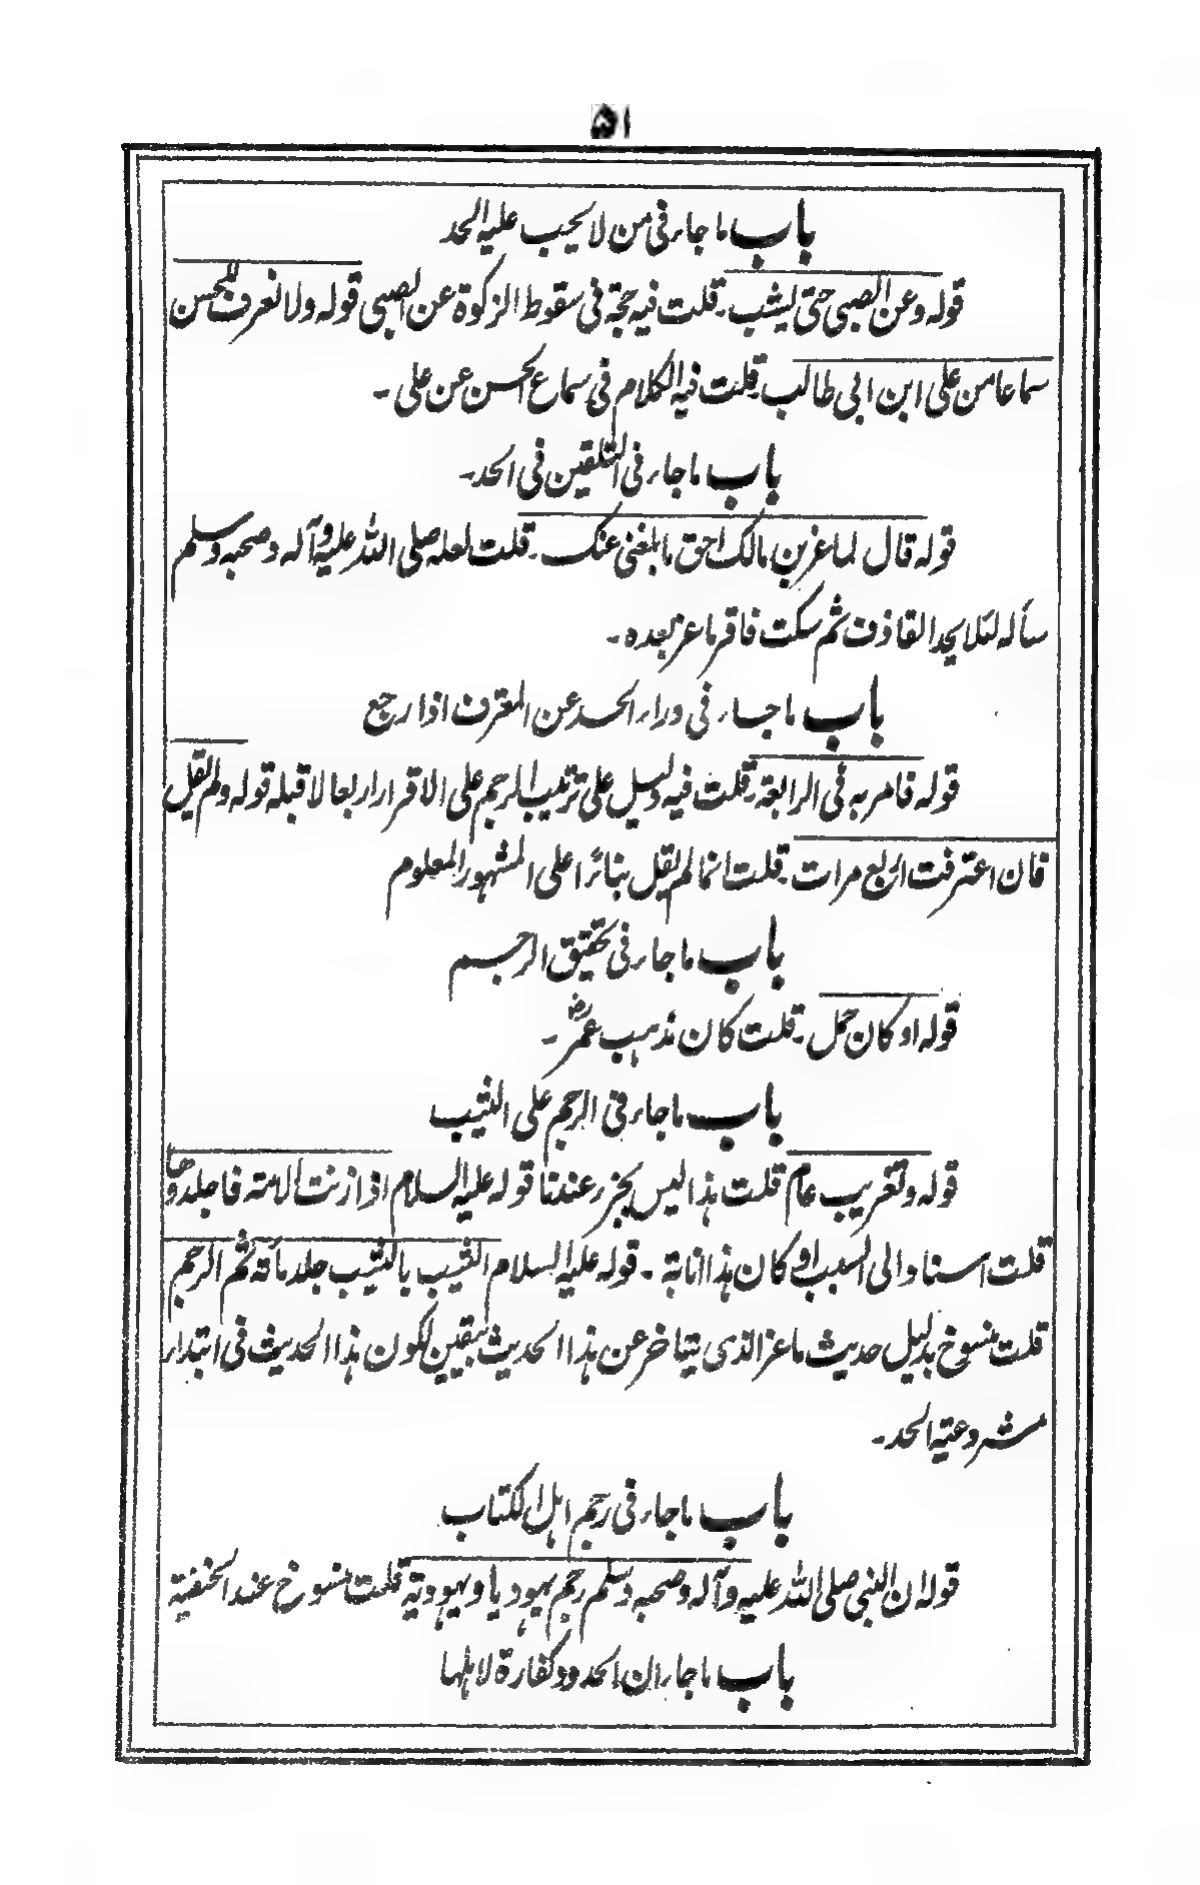 ۵۱
باب ما جاء فی من لا یجب علیہ الحد
قولہ وعن الصبی حتی یشب۔ قلت فیہ حجۃ فی سقوط الزکوۃ عن الصبی قولہ ولا نعرف للحسن
سماعا من علی ابن ابی طالب۔ قلت فیہ الکلام فی سماع الحسن عن علی۔
باب ما جاء فی التلقین فی الحد۔
قولہ قال لماعز بن مالک احق ما بلغنی عنک۔ قلت لعلہ صلی اللہ علیہ وآلہ وصحبہ وسلم
سألہ لئلا یحد القاذف ثم سکت فاقر ماعز بعدہ۔
باب ما جاء فی دراء الحد عن المعترف اذا رجع
قولہ فامر بہ فی الرابعۃ۔ قلت فیہ دلیل علی ترتیب الرجم علی الاقرار اربعا لا قبلہ قولہ ولم یقل
فان اعترفت اربع مرات۔ قلت انما لم یقل بناءً اعلی المشہور المعلوم
باب ما جاء فی تحقیق الرجم
قولہ او کان حمل۔ قلت کان مذہب عمرؓ۔
باب ما جاء فی الرجم علی الثیب
قولہ وتغریب عام قلت ہذا لیس بجزء عندنا قولہ علیہ السلام اذا زنت الامتہ فاجلدوہا
قلت اسناد الی السبب او کان ہذا انابۃ۔ قولہ علیہ السلام الثیب بالثیب جلد مأتہ ثم الرجم
قلت منسوخ بدلیل حدیث ماعز الذی یتأخر عن ہذا الحدیث بیقین لکون ہذا الحدیث فی ابتداء
مشروعیۃ الحد۔
باب ما جاء فی رجم اہل الکتاب
قولہ ان النبی صلی اللہ علیہ وآلہ وصحبہ وسلم رجم یہودیا ویہودیۃ قلت منسوخ عند الحنفیۃ
باب ما جاء ان الحدود کفارۃ لاہلہا